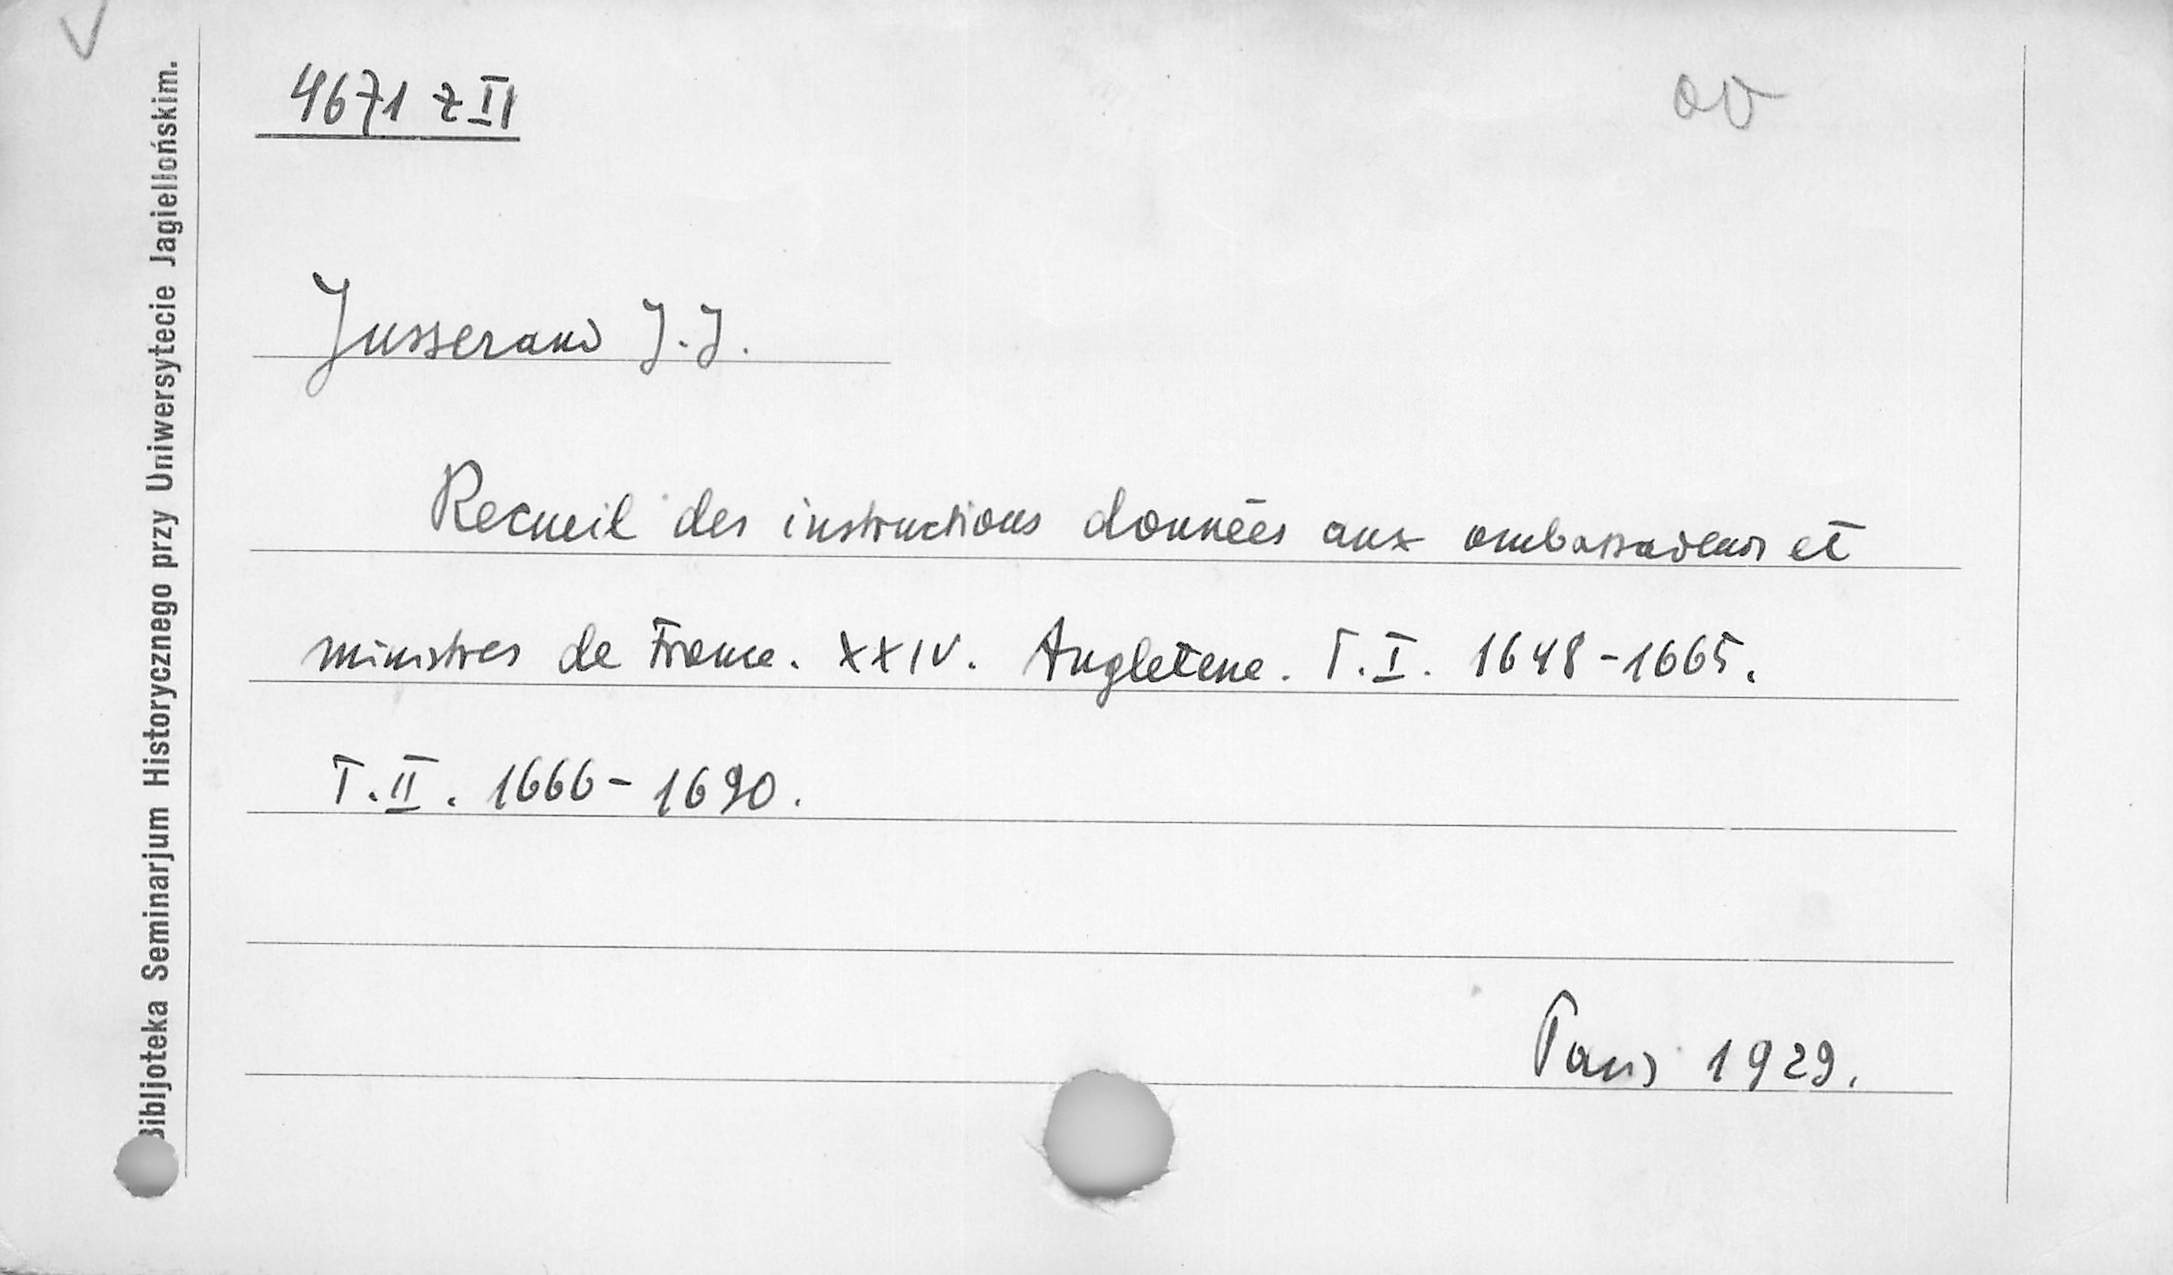 4671 z II
Jusserand J. J.
Recueil des instructions données aux ambassadeurs et
ministres de France. XXIV. Angleterre. T. I. 1648-1665.
T. II. 1666-1690.
Paris 1929.
Bibljoteka Seminarjum Historycznego przy Uniwersytecie Jagiellońskim.